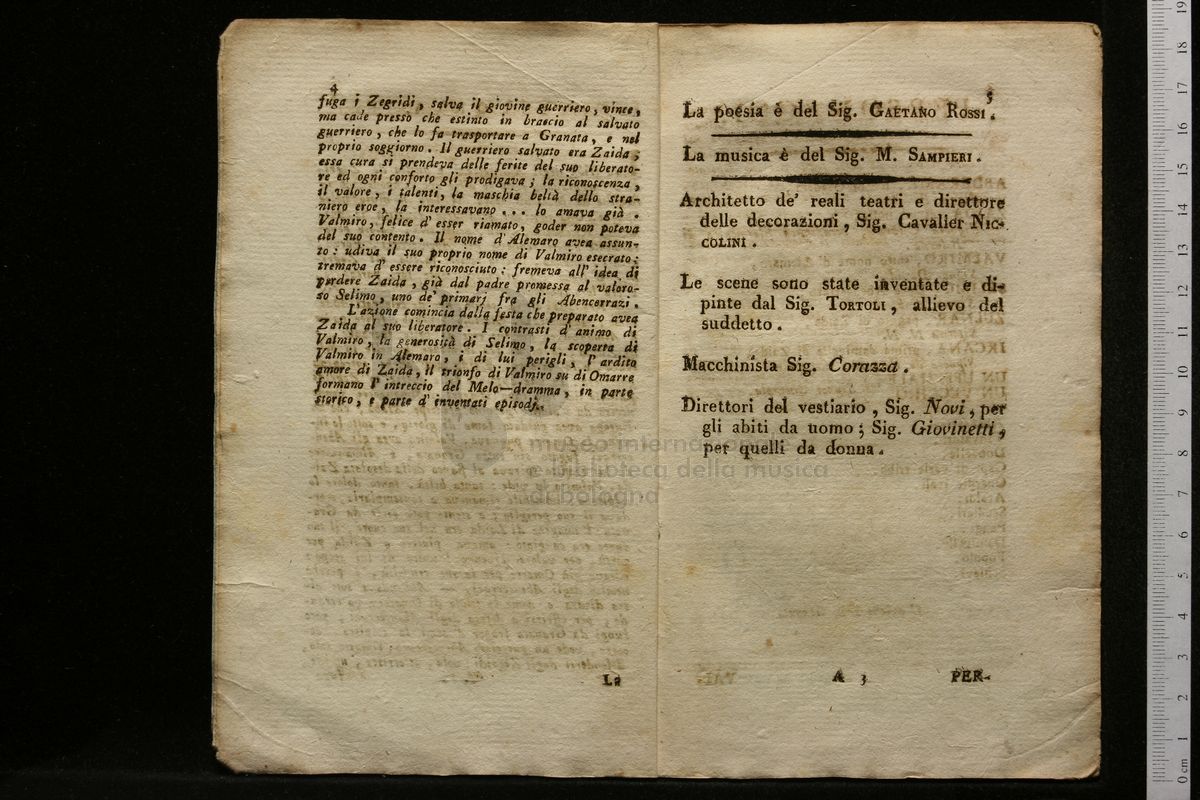 4
fuga i Zegridi, salva il giovine guerriero, vince,
ma cade presso che estinto in braccio al salvato
guerriero, che lo fa trasportare a Granata, e nel
proprio soggiorno. Il guerriero salvato era Zaida;
essa cura si prendeva delle ferite del suo liberato-
re ed ogni conforto gli prodigava; la riconoscenza,
il valore, i talenti, la maschia beltà dello stra-
niero eroe, la interessavano... lo amava già.
Valmiro, felice d'esser riamato, goder non poteva
del suo contento. Il nome d'Alemaro avea assun-
to: udiva il suo proprio nome di Valmiro esecrato:
tremava d'essere riconosciuto: fremeva all'idea di
perdere Zaida, già dal padre promessa al valoro-
so Selimo, uno de' primarj fra gli Abencerrazi.
L'azione comincia dalla festa che preparato avea
Zaida al suo liberatore. I contrasti d'animo di
Valmiro, la generosità di Selimo, la scoperta di
Valmiro in Alemaro, i di lui perigli, l'ardito
amore di Zaida, il trionfo di Valmiro su di Omarre
formano l'intreccio del Melo-dramma, in parte
storico, e parte d'inventati episodj.
La
5
La poesia è del Sig. GAETANO ROSSI.
La musica è del Sig. M. SAMPIERI.
Architetto de' reali teatri e direttore
delle decorazioni, Sig. Cavalier NIC-
COLINI.
Le scene sono state inventate e di-
pinte dal Sig. TORTOLI, allievo del
suddetto.
Macchinista Sig. Corazza.
Direttori del vestiario, Sig. Novi, per
gli abiti da uomo; Sig. Giovinetti,
per quelli da donna.
A 3 PER-
museo internazionale
e biblioteca della musica
di bologna
0 cm 1 2 3 4 5 6 7 8 9 10 11 12 13 14 15 16 17 18 19